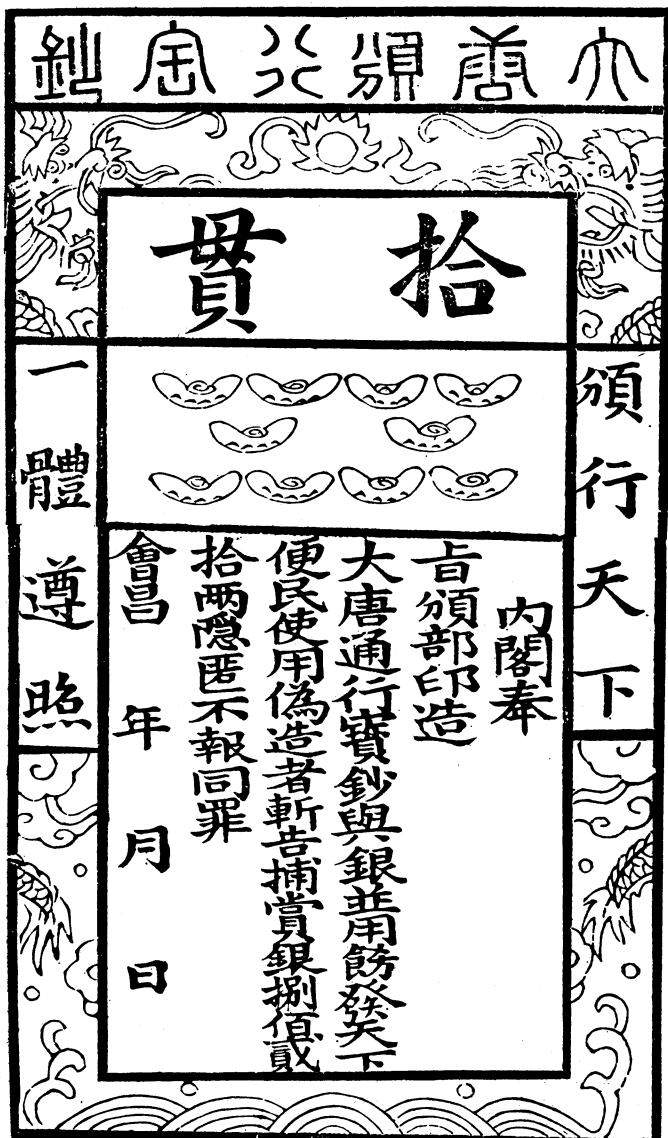 大唐頒行宝鈔
拾貫
頒行天下
內閣奉
旨頒部印造
大唐通行寶鈔與銀並用餝發天下
便民使用偽造者斬告捕賞銀捌佰貳
拾兩隱匿不報同罪
會昌 年 月 日
一體遵照